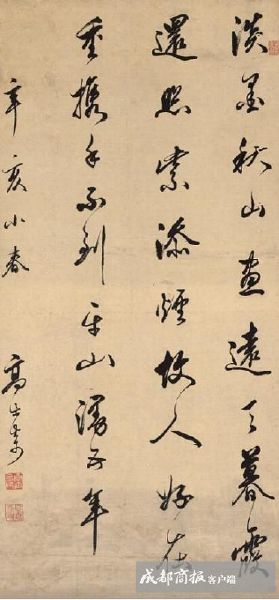 淡墨秋山畫遠天暮霞
還照紫添煙故人好在
重攜手不到平山謾五年
辛亥小春 高士奇
成都商报客户端